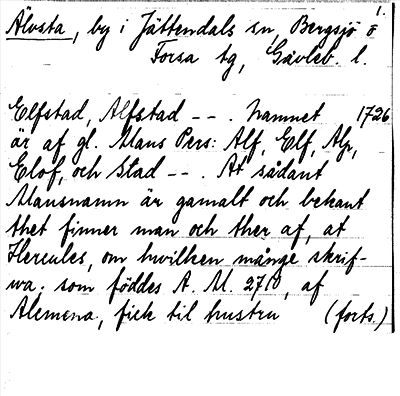 1.
Älvsta, by i Jättendals sn, Bergsjö o
Forsa tg, Gävleb. l.
Elfstad, Alfstad - - . Namnet 1726
är af gl. Mans Pers: Alf, Elf, Alp,
Elof, och Stad - - . At sådant
Mansnamn är gamalt och bekant
thet finner man och ther af, at
Hercules, om hwilken månge skrif-
wa: som föddes A. M. 2710, af
Alcmena, fick til hustru (forts.)